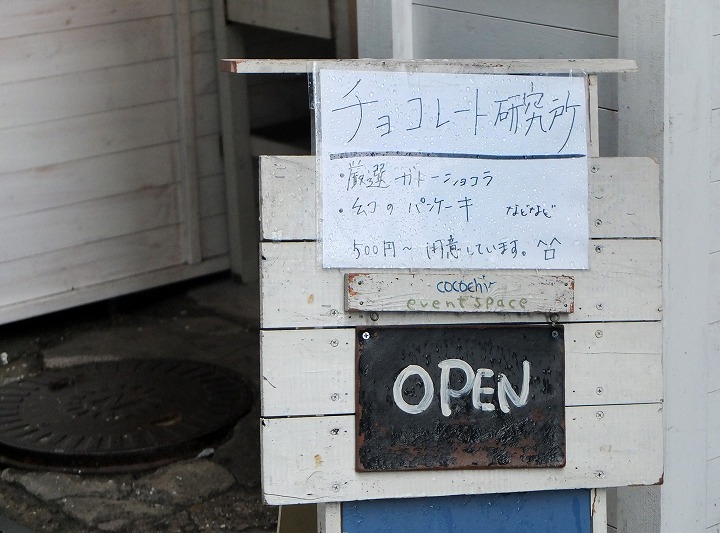 チョコレート研究所
・厳選 ガトーショコラ
・幻の パンケーキ などなど
500円〜 用意しています。^口^
cocochi
event space
OPEN